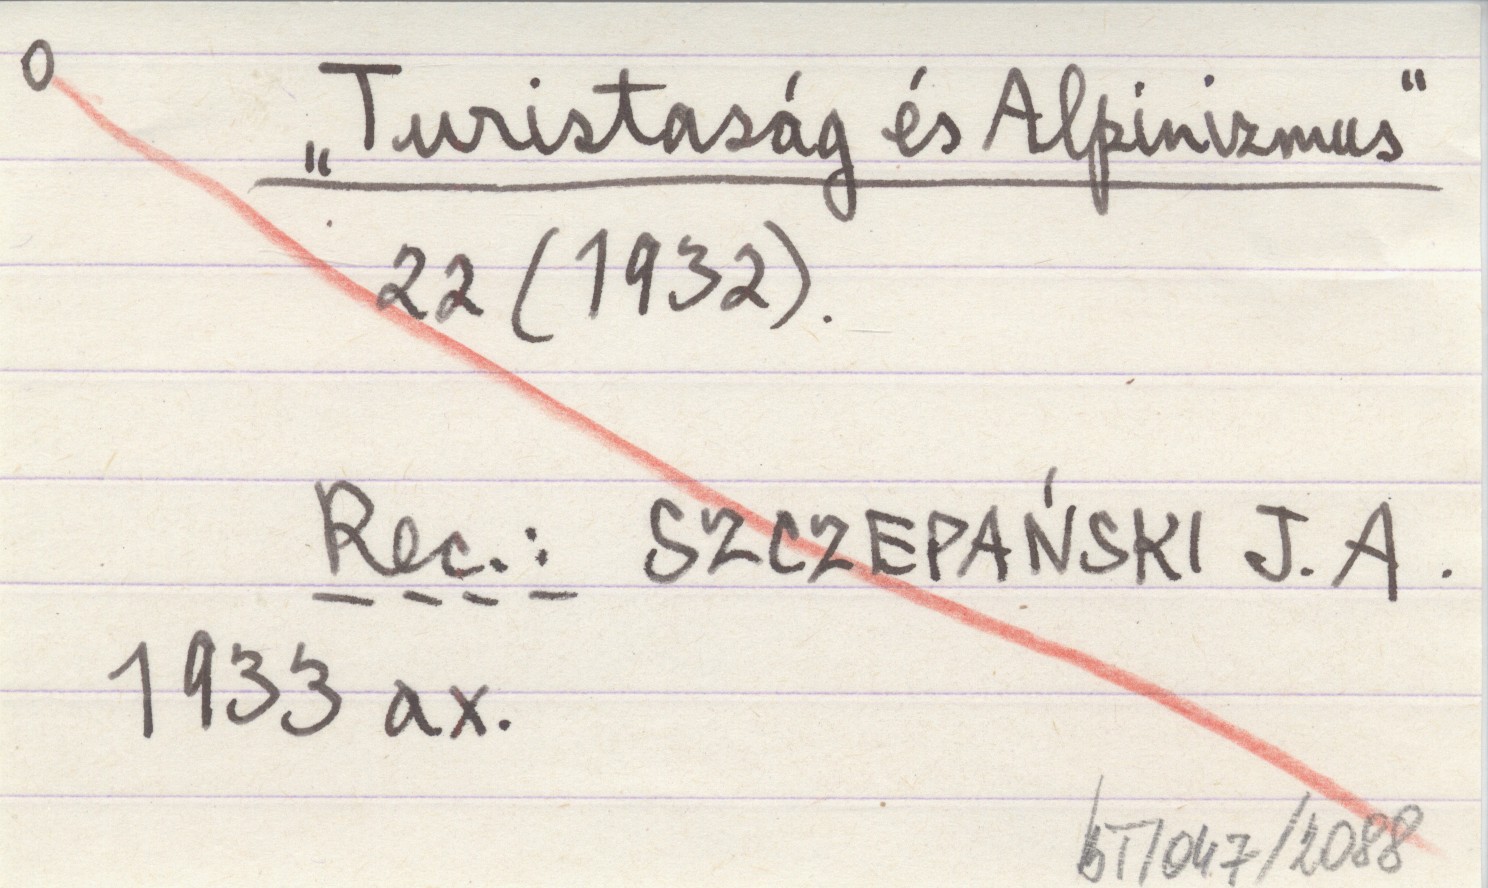 0
„Turistaság és Alpinizmus“
22 (1932).
Rec.: SZCZEPAŃSKI J. A.
1933 ax.
bT/047/2088